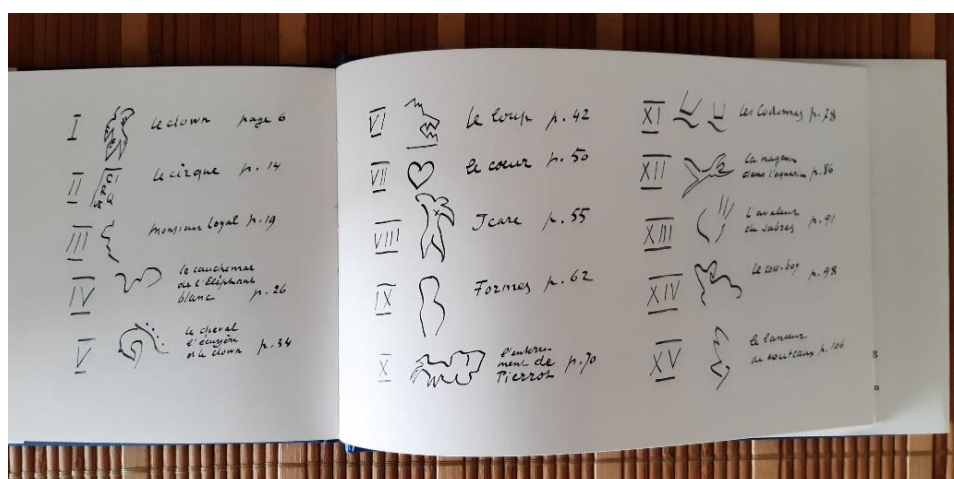 I le clown page 6
II le cirque p. 14
III Monsieur Loyal p. 19
IV le cauchemar
de l'Eléphant
blanc p. 26
V le cheval
l'écuyère
et le clown p. 34
VI le loup p. 42
VII le coeur p. 50
VIII Icare p. 55
IX Formes p. 62
X l'enterre-
ment de
Pierrot p. 70
XI les Codomas p. 78
XII la nageuse
dans l'aquarium p. 86
XIII l'avaleur
de sabres p. 91
XIV le cow-boy p. 98
XV le lanceur
de couteaux p. 106